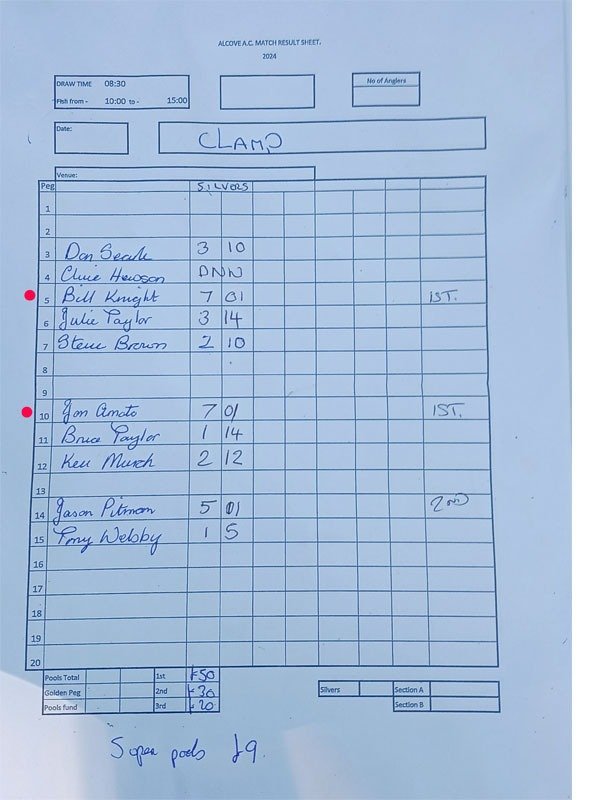 ALCOVE A.C. MATCH RESULT SHEET.
2024
DRAW TIME 08:30
Fish from - 10:00 to - 15:00
No of Anglers
Date:
CLAMP
Venue:
Peg SILVERS
1
2
3 Don Searle 3 10
4 Clive Hewson DNW
5 Bill Knight 7 01 1ST.
6 Julie Taylor 3 14
7 Steve Brown 2 10
8
9
10 Jon Amato 7 01 1ST.
11 Bruce Taylor 1 14
12 Kev Murch 2 12
13
14 Jason Pitman 5 01 2nd
15 Tony Welsby 1 5
16
17
18
19
20
Pools Total 1st £50 Silvers Section A
Golden Peg 2nd £30 Section B
Pools fund 3rd £20
Super pools £9.